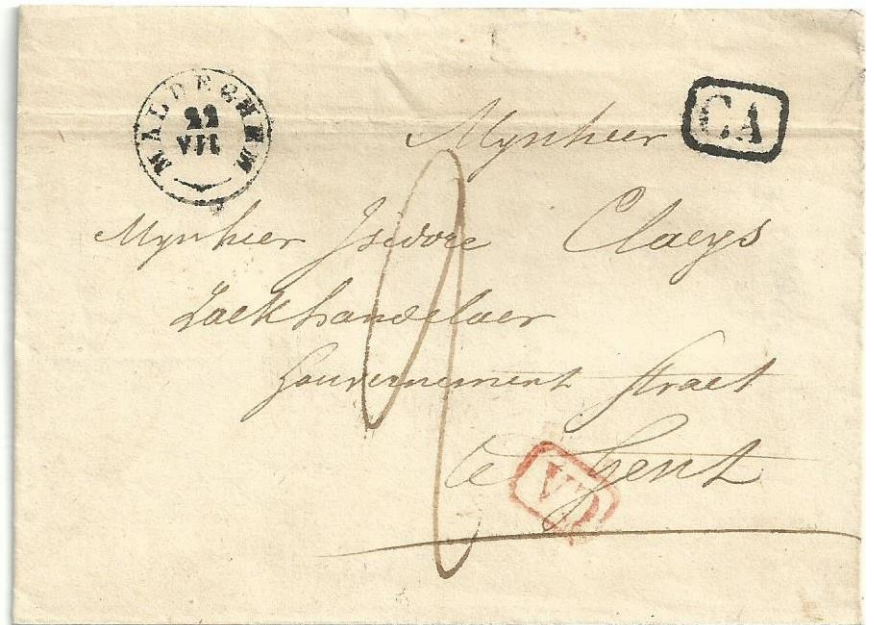 MALDEGHEM
22
VII
CA
Mynheer
Mynheer Isidore Claeys
Zaekhandelaer
Gouvernement Straet
te Gent